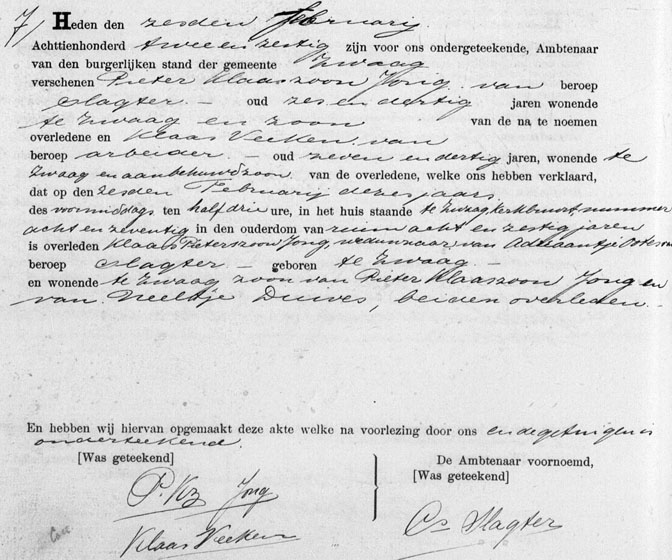 7/ Heden den zesden Februarij
Achttienhonderd twee en zestig zijn voor ons ondergeteekende, Ambtenaar
van den burgerlijken stand der gemeente Zwaag
verschenen Pieter Klaaszoon Jong van beroep
slagter – oud zes en dertig jaren wonende
te Zwaag en zoon van de na te noemen
overledene en Klaas Veeken van
beroep arbeider – oud zeven en dertig jaren, wonende te
Zwaag en aanbehuwdzoon van de overledene, welke ons hebben verklaard,
dat op den zesden Februarij dezes jaars
des voormiddags ten half drie ure, in het huis staande te Zwaag kerkbuurt, nummer
acht en zeventig in den ouderdom van ruim acht en zestig jaren
is overleden Klaas Pieterszoon Jong, weduwnaar van Adriaantje
beroep slagter – geboren te Zwaag –
en wonende te Zwaag zoon van Pieter Klaaszoon Jong en
van Neeltje Duives, beiden overleden. –
En hebben wij hiervan opgemaakt deze akte welke na voorlezing door ons en de getuigen is
onderteekend.
[Was geteekend] De Ambtenaar voornoemd,
[Was geteekend]
P. Kz Jong
Cs Slagter
Klaas Veeken